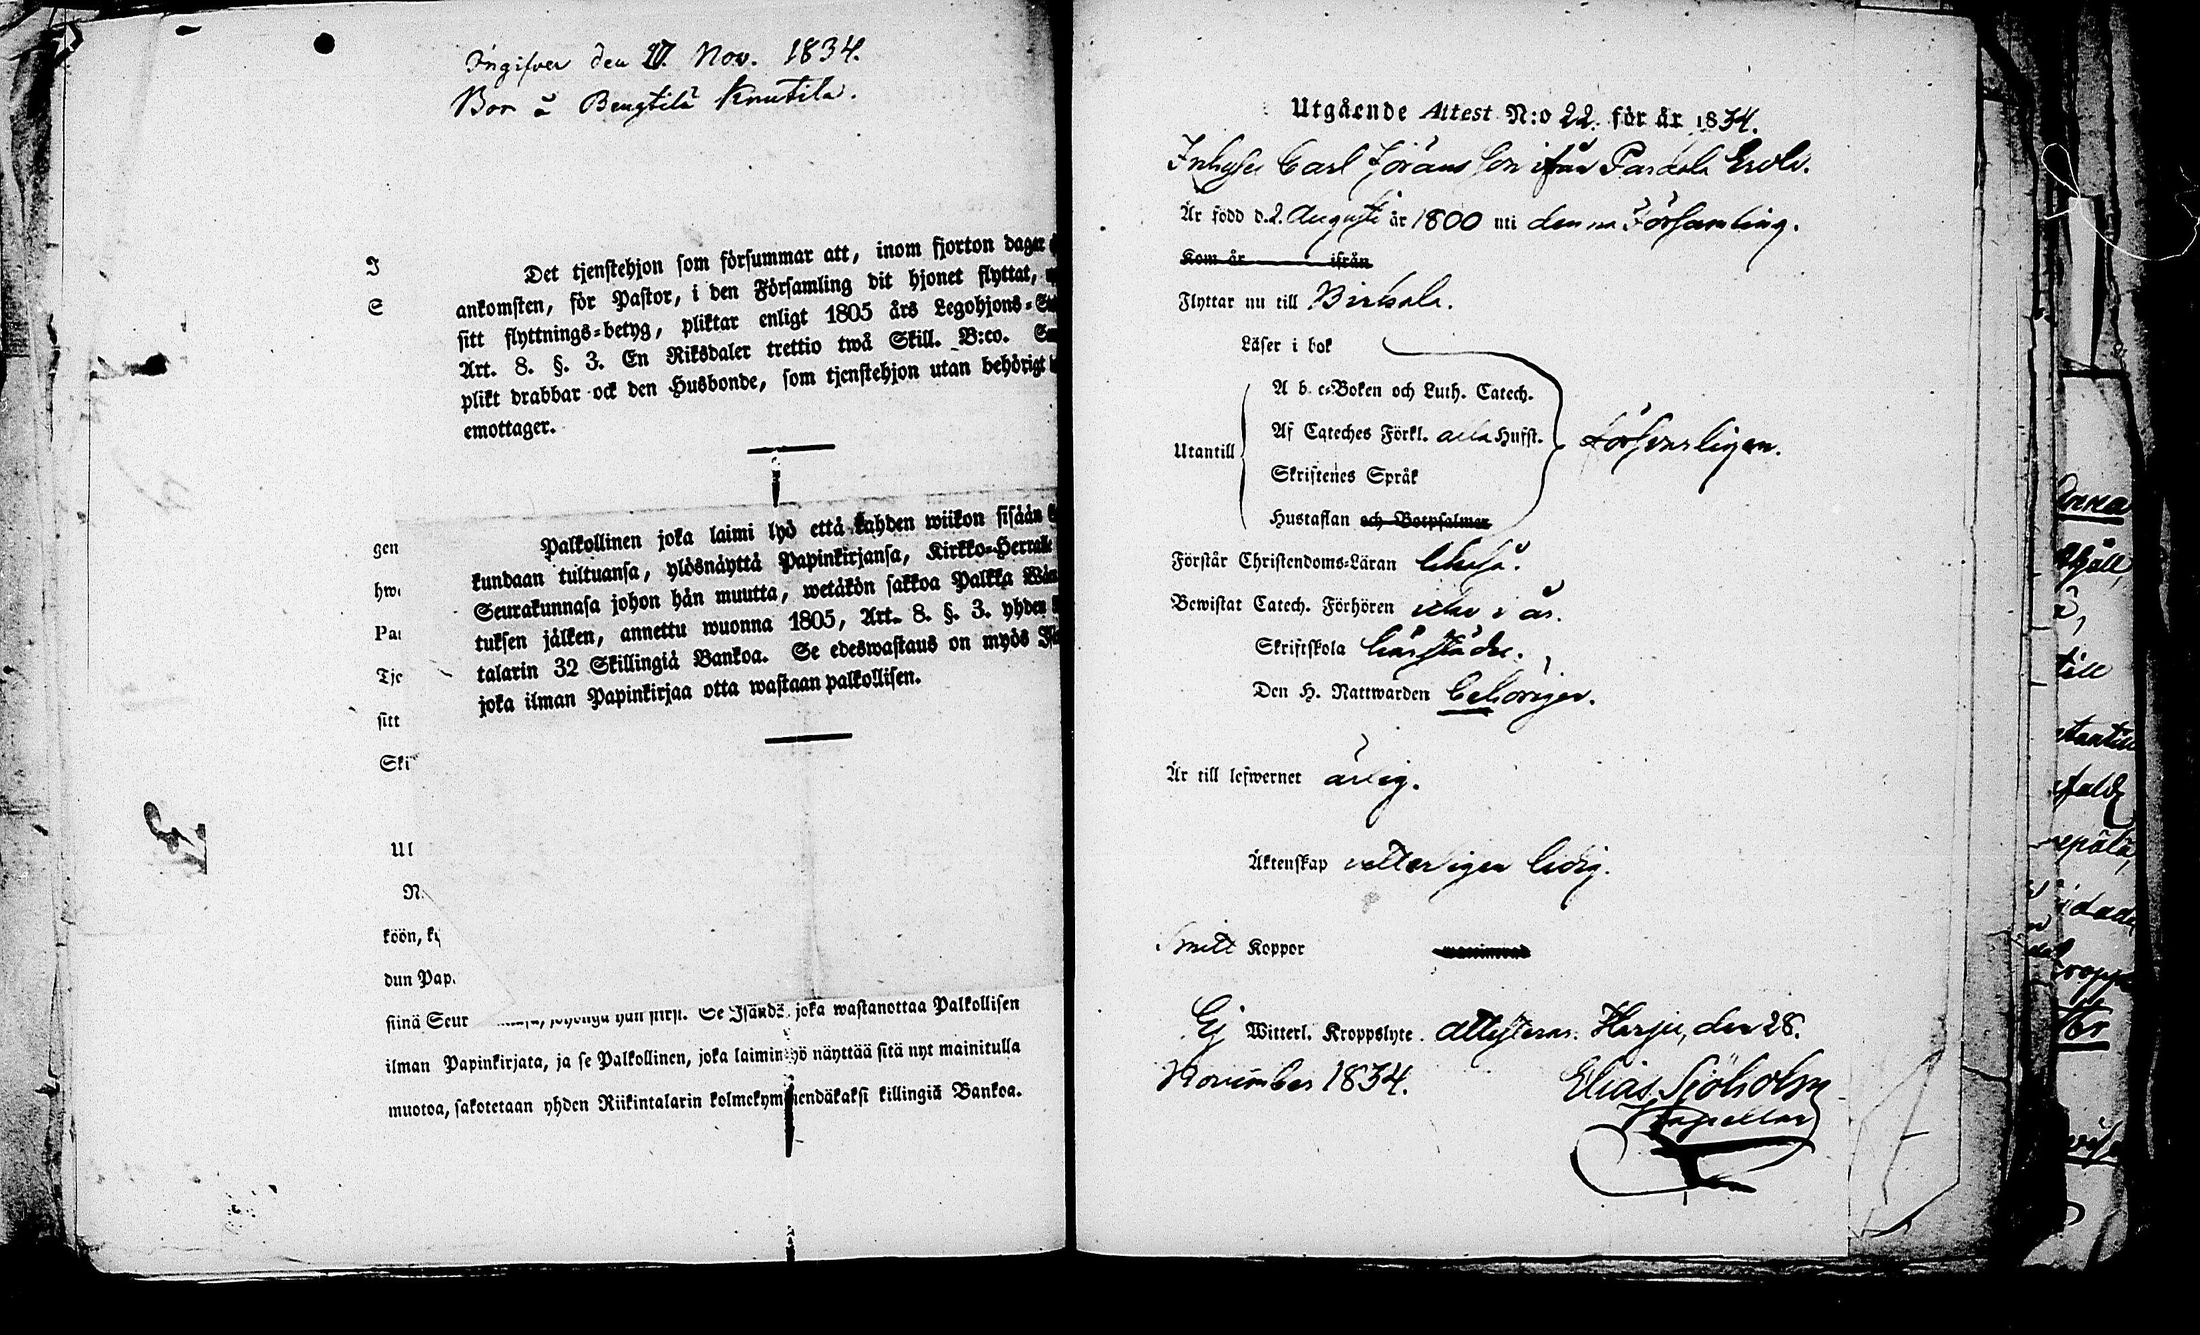 Ingifven den 27. Nov. 1834.
Bor å Bengtilä Knutila.
Det tjenstehjon som försummar att, inom fjorton dagar
ankomsten, för Pastor, i den Församling dit hjonet flyttat,
sitt flyttnings-betyg, pliktar enligt 1805 års Legohjons-
Art. 8. §. 3. En Riksdaler trettio twå Skill. B:co.
plikt drabbar ock den Husbonde, som tjenstehjon utan behörigt
emottager.
Palkollinen joka laimi lyö että kahden wiikon sisään
kundaan tultuansa, ylösnäyttä Papinkirjansa, Kirkko-Herralle
Seurakunnasa johon hän muutta, wetäkön sakkoa Palkka
tuksen jälken, annettu wuonna 1805, Art. 8. §. 3. yhden
talarin 32 Skillingiä Bankoa. Se edeswastaus on myös
joka ilman Papinkirjaa otta wastaan palkollisen.
I
E
gen
hw
Pa
Tje
sitt
Ski
Ul
N.
köön,
dun Pap.
siinä Seur Se Isändä, joka wastanottaa Palkollisen
ilman Papinkirjata, ja se Palkollinen, joka laiminlyö näyttää sitä nyt mainitulla
muotoa, sakotetaan yhden Riikintalarin kolmekymmendäkaksi killingiä Bankoa.
Utgående Attest N:o 22. för år 1834.
Inhyses Carl Jöransson ifrån Pardala Erola.
Är född d. 2. Augusti år 1800 uti denna Församling.
Kom år ifrån
Flyttar nu till Birkala.
Läser i bok
Utantill
A b c-Boken och Luth. Catech.
Af Cateches Förkl. alla Hufst.
Skriftenes Språk
Hustaflan och Botpsalmer
försvarligen.
Förstår Christendoms-Läran
Bewistat Catech. Förhören i år.
Skriftskola härstädes.
Den H. Nattwarden behörigen.
Är till lefwernet ärlig.
Äktenskap vetterligen ledig.
Haft Koppor
Ej Witterl. Kroppslyte. attesteras. Harju, den 28.
November 1834.
Elias Sjöholm
Kapellan